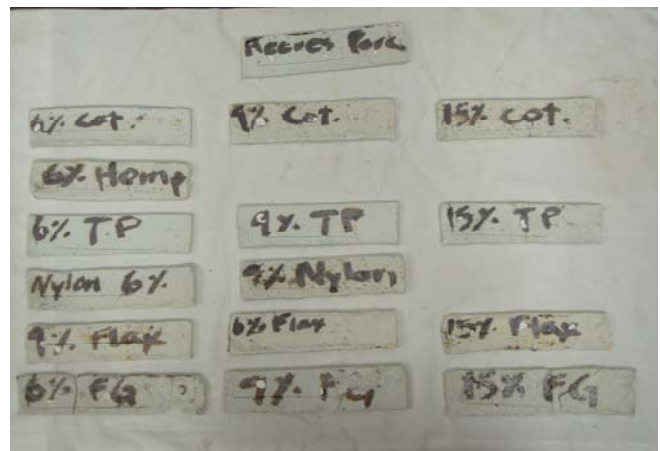 Reeves Porc
6% Cot. 9% Cot. 15% Cot.
6% Hemp
6% TP 9% TP 15% TP
Nylon 6% 9% Nylon
9% Flax 6% Flax 15% Flax
6% FG 9% FG 15% FG